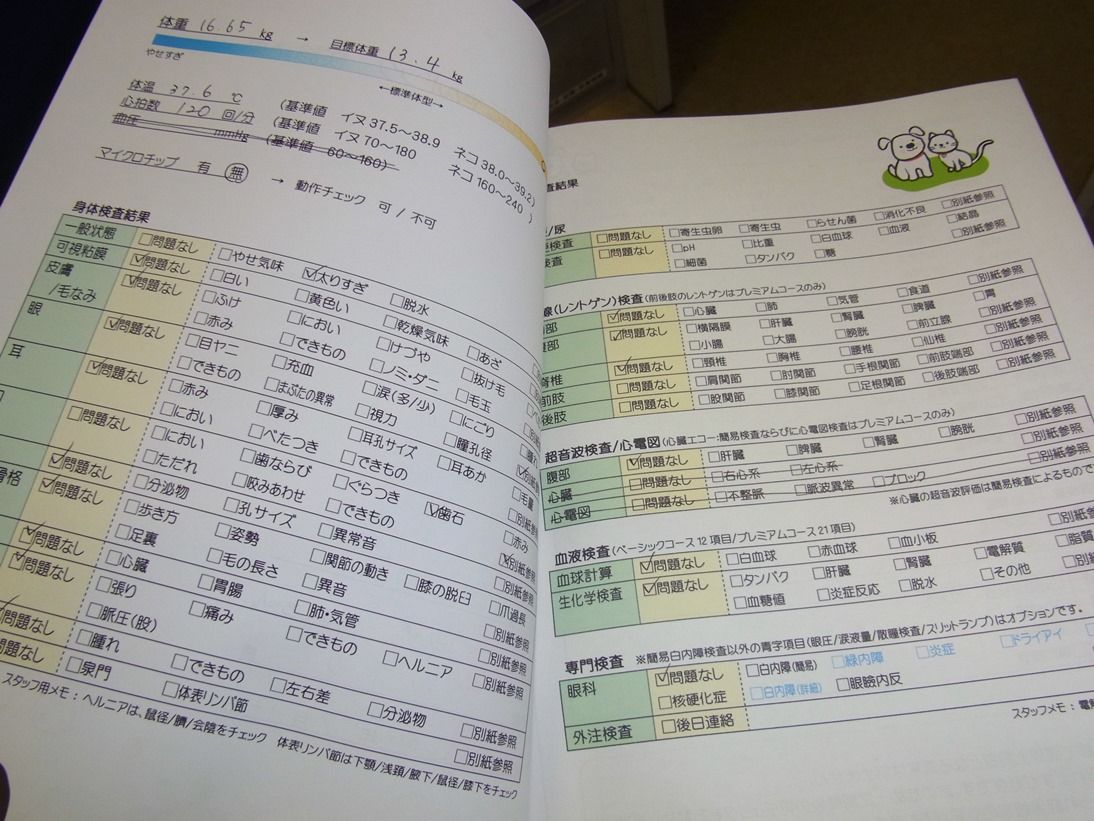 体重 16.65 kg → 目標体重 13.4 kg
やせすぎ
←標準体型→
体温 37.6 ℃ (基準値 イヌ37.5～38.9 ネコ38.0～39.2)
心拍数 120 回/分 (基準値 イヌ70～180 ネコ160～240 )
血圧 mmHg (基準値 60～160)
マイクロチップ 有 無 → 動作チェック 可 / 不可
身体検査結果
一般状態 □問題なし □やせ気味 ☑太りすぎ □脱水
可視粘膜 ☑問題なし □白い □黄色い □乾燥気味 □あざ
皮膚 ☑問題なし □ふけ □におい □けづや □抜け毛
/毛なみ □赤み □できもの □ノミ・ダニ □毛玉
眼 ☑問題なし □目ヤニ □充血 □涙(多/少) □にごり
□できもの □まぶたの異常 □視力 □瞳孔径
耳 ☑問題なし □赤み □厚み □耳孔サイズ □耳あか
□におい □べたつき □できもの
□問題なし □におい □歯ならび □ぐらつき ☑歯石 □赤み
□ただれ □咬みあわせ □できもの ☑別紙参照
☑問題なし □分泌物 □孔サイズ □異常音 □別紙参照
骨格 ☑問題なし □歩き方 □姿勢 □関節の動き □膝の脱臼 □別紙参照
□足裏 □毛の長さ □爪過長
☑問題なし □心臓 □異音 □肺・気管 □別紙参照
☑問題なし □張り □胃腸 □できもの □ヘルニア □別紙参照
□脈圧(股) □痛み □別紙参照
☑問題なし □腫れ □できもの □左右差 □分泌物 □別紙参照
問題なし □泉門 □体表リンパ節 □別紙参照
スタッフ用メモ：ヘルニアは、鼠径/臍/会陰をチェック 体表リンパ節は下顎/浅頚/腋下/鼠径/膝下をチェック
査結果
/尿
検査 □問題なし □寄生虫卵 □寄生虫 □らせん菌 □消化不良 □別紙参照
検査 □問題なし □pH □比重 □白血球 □血液 □結晶
□細菌 □タンパク □糖 □別紙参照
線(レントゲン)検査(前後肢のレントゲンはプレミアムコースのみ)
部 ☑問題なし □心臓 □肺 □気管 □食道 □別紙参照
部 ☑問題なし □横隔膜 □肝臓 □腎臓 □脾臓 □胃
□小腸 □大腸 □膀胱 □前立腺 □別紙参照
脊椎 ☑問題なし □頸椎 □胸椎 □腰椎 □仙椎 □別紙参照
前肢 □問題なし □肩関節 □肘関節 □手根関節 □前肢端部 □別紙参照
後肢 □問題なし □股関節 □膝関節 □足根関節 □後肢端部 □別紙参照
超音波検査/心電図(心臓エコー:簡易検査ならびに心電図検査はプレミアムコースのみ)
腹部 ☑問題なし □肝臓 □脾臓 □腎臓 □膀胱 □別紙参照
心臓 □問題なし □右心系 □左心系 □別紙参照
心電図 □問題なし □不整脈 □脈波異常 □ブロック □別紙参照
※心臓の超音波評価は簡易検査によるもので
血液検査(ベーシックコース12項目/プレミアムコース21項目)
血球計算 ☑問題なし □白血球 □赤血球 □血小板 □別紙参
生化学検査 ☑問題なし □タンパク □肝臓 □腎臓 □電解質 □脂質
□血糖値 □炎症反応 □脱水 □その他 □別紙
専門検査 ※簡易白内障検査以外の青字項目(眼圧/涙液量/散瞳検査/スリットランプ)はオプションです。
眼科 ☑問題なし □白内障(簡易) □緑内障 □炎症 □ドライアイ
□核硬化症 □白内障(詳細) □眼瞼内反
外注検査 □後日連絡
スタッフメモ：電解